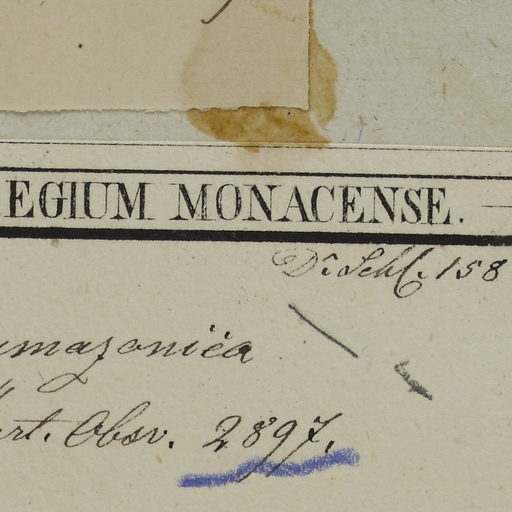 EGIUM MONACENSE.
158
mazonica
rt. Obsv. 2897.